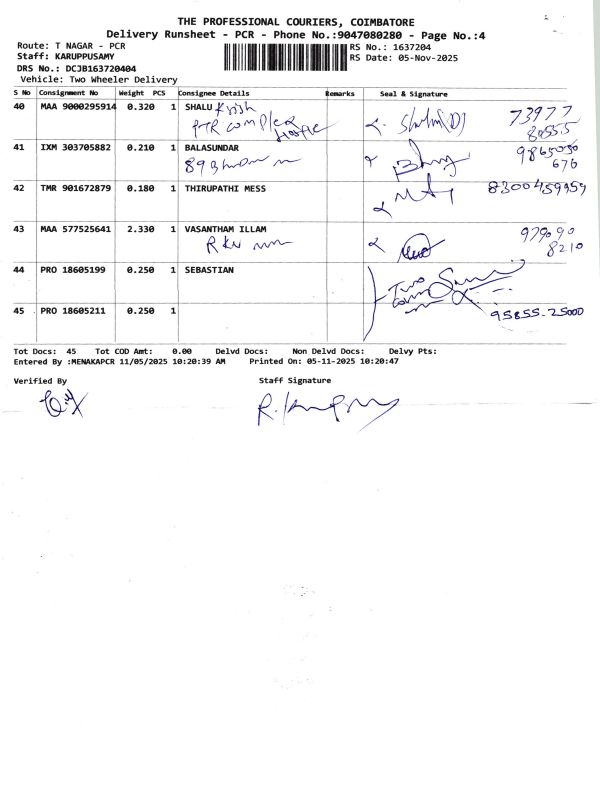 THE PROFESSIONAL COURIERS, COIMBATORE
Delivery Runsheet - PCR - Phone No.:9047080280 - Page No.:4
Route: T NAGAR - PCR
RS No.: 1637204
Staff: KARUPPUSAMY
RS Date: 05-Nov-2025
DRS No.: DCJB163720404
Vehicle: Two Wheeler Delivery
S No Consignment No Weight PCS Consignee Details Remarks Seal & Signature
40 MAA 9000295914 0.320 1 SHALU Krish 73977
PTR complex Hostle 80555
41 IXM 303705882 0.210 1 BALASUNDAR 9865030
89 676
42 TMR 901672879 0.180 1 THIRUPATHI MESS 8300459959
43 MAA 577525641 2.330 1 VASANTHAM ILLAM 979090
8210
44 PRO 18605199 0.250 1 SEBASTIAN
Two
45 PRO 18605211 0.250 1 95855-25000
Tot Docs: 45 Tot COD Amt: 0.00 Delvd Docs: Non Delvd Docs: Delvy Pts:
Entered By :MENAKAPCR 11/05/2025 10:20:39 AM Printed On: 05-11-2025 10:20:47
Verified By Staff Signature